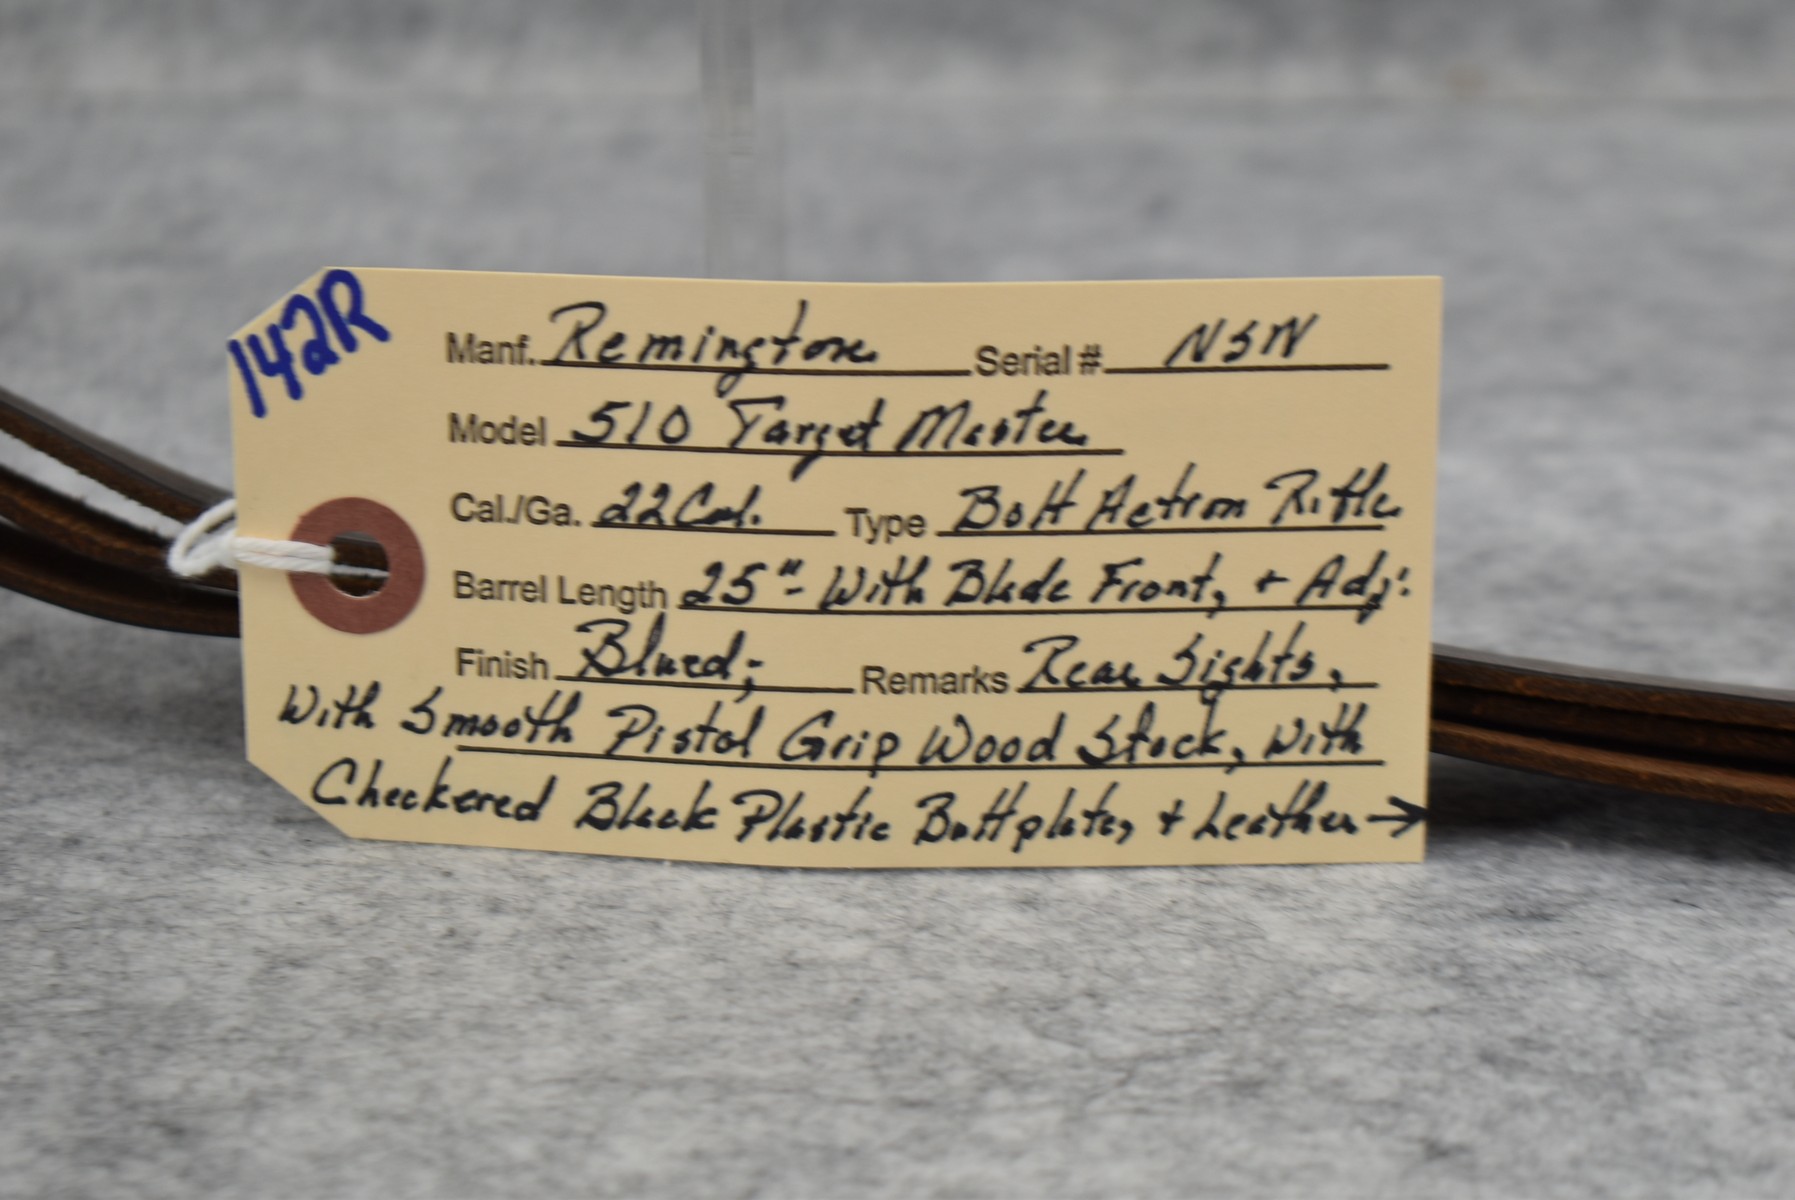 142R
Manf. Remington Serial # NSN
Model 510 Target Master
Cal./Ga. 22 Cal. Type Bolt Action Rifle
Barrel Length 25" - With Blade Front, + Adj:
Finish Blued; Remarks Rear Sights,
With Smooth Pistol Grip Wood Stock, With
Checkered Black Plastic Buttplate, + Leather →